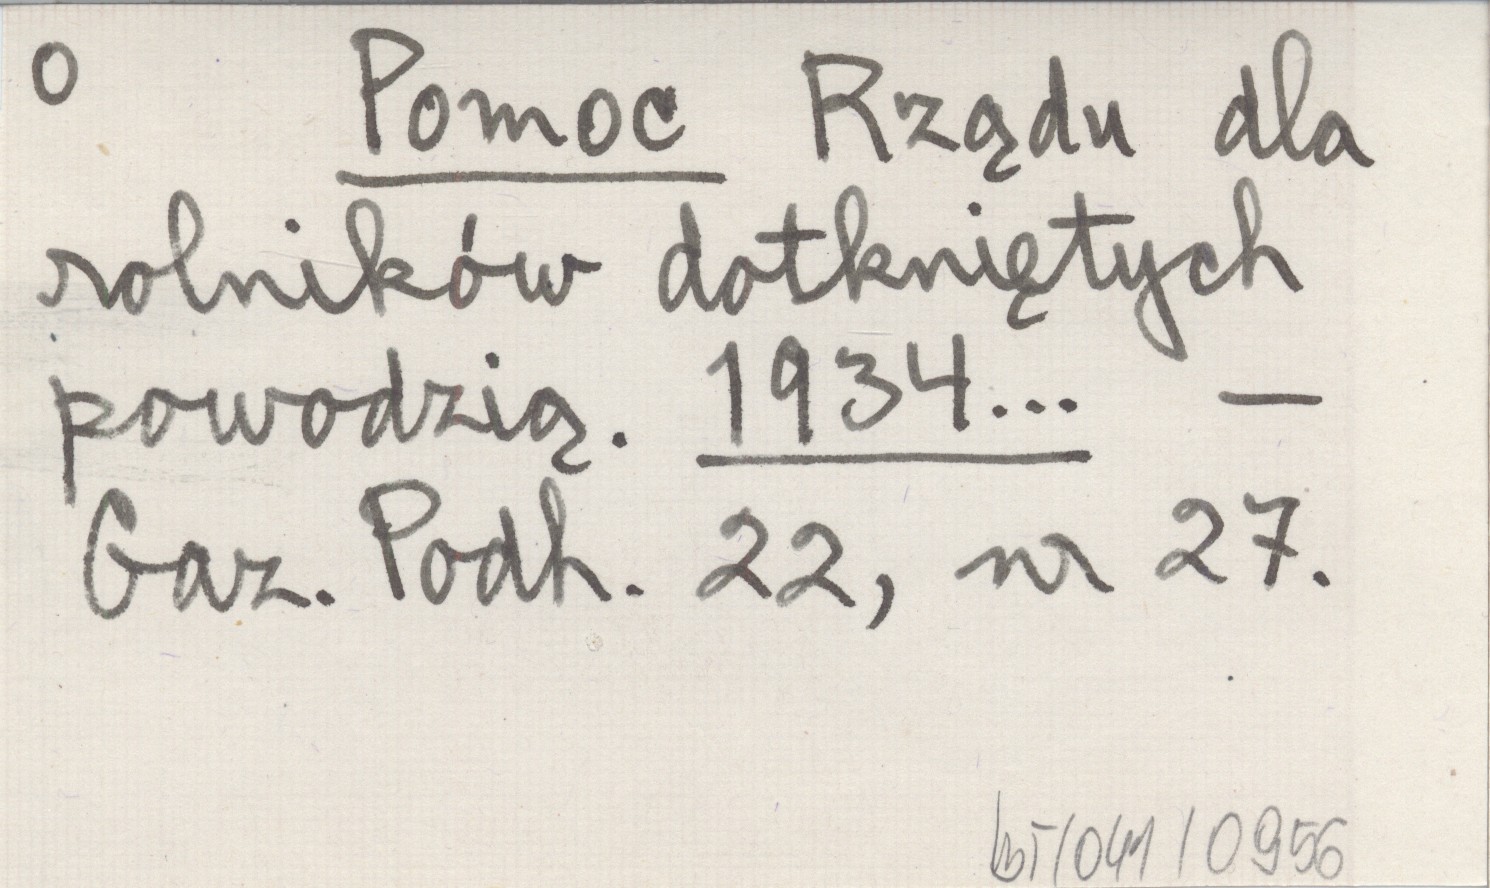 o Pomoc Rządu dla
rolników dotkniętych
powodzią. 1934... —
Gaz. Podh. 22, nr 27.
/0956